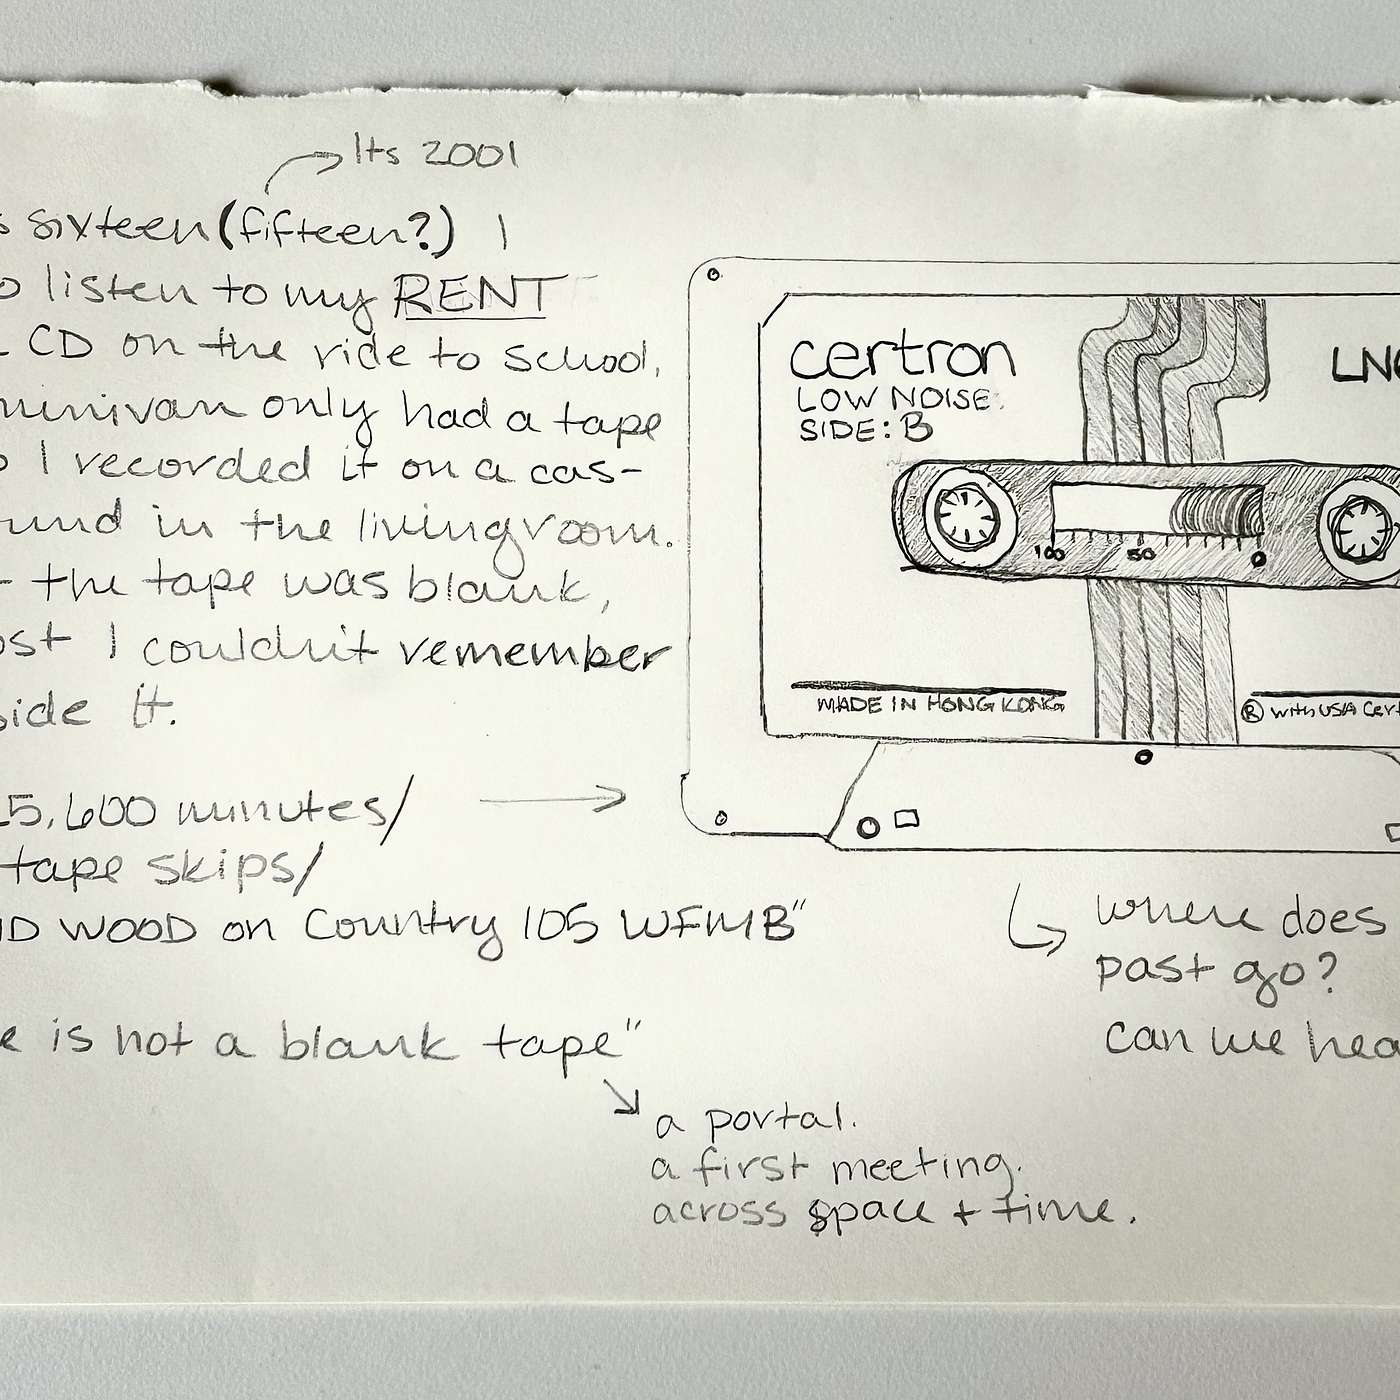 Its 2001
s sixteen (fifteen?) I
o listen to my RENT
CD on the ride to school,
minivan only had a tape
o I recorded it on a cas-
und in the livingroom.
the tape was blank,
ost I couldn't remember
side it.
25,600 minutes/
tape skips/
ND WOOD on Country 105 WFMB"
e is not a blank tape"
a portal.
a first meeting.
across space + time.
certron
LOW NOISE
SIDE: B
LN
100 50 0
MADE IN HONG KONG
® with USA Cert
where does
past go?
can we hea